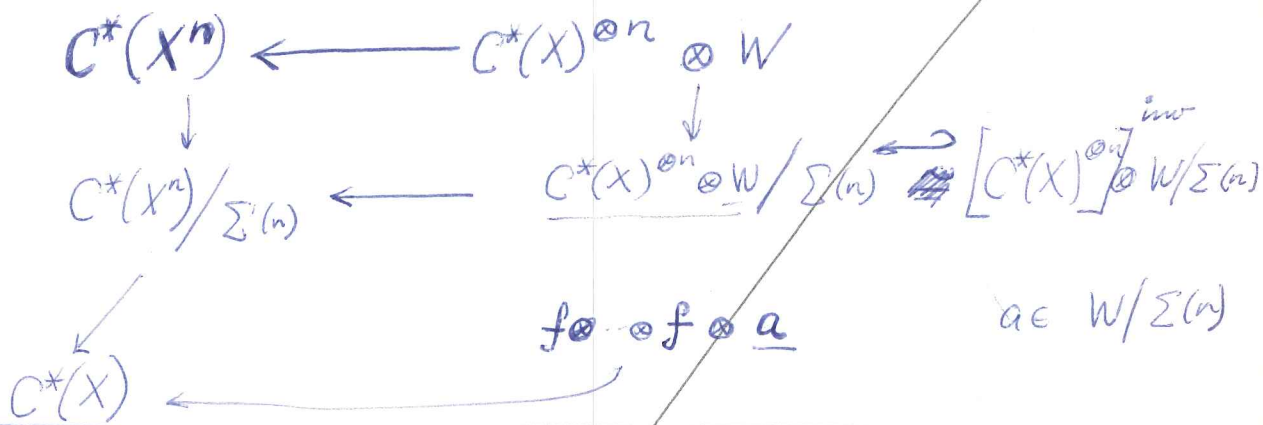 C*(Xⁿ) ← C*(X)^{⊗n} ⊗ W
↓ ↓
C*(Xⁿ)/Σ(n) ← C*(X)^{⊗n} ⊗ W/Σ(n) ↩ [C*(X)^{⊗n}]^{inv} ⊗ W/Σ(n)
↙ f⊗ ·· ⊗f ⊗ a a ∈ W/Σ(n)
C*(X) ←